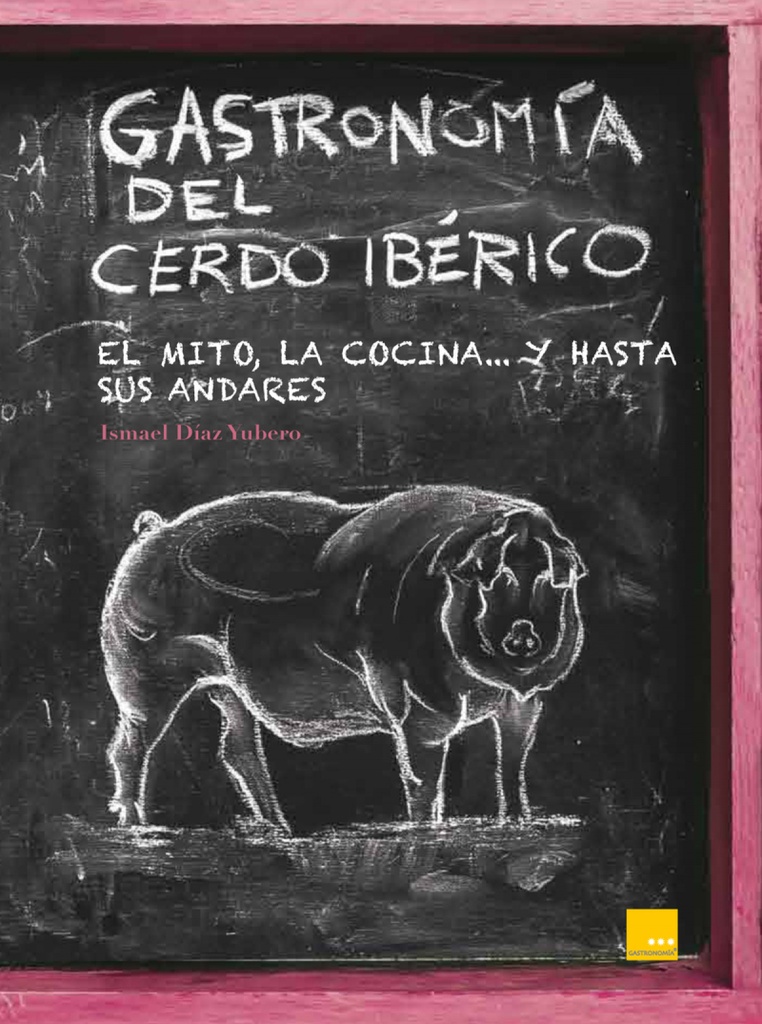 GASTRONOMÍA
DEL
CERDO IBÉRICO
EL MITO, LA COCINA... Y HASTA
SUS ANDARES
Ismael Díaz Yubero
GASTRONOMÍA